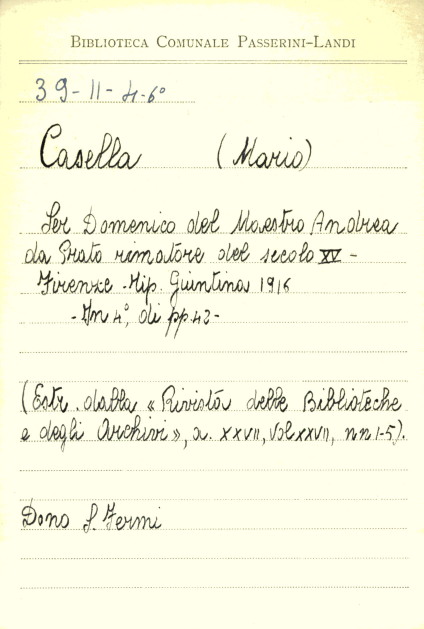 BIBLIOTECA COMUNALE PASSERINI-LANDI
39-11-4-6°
Casella (Mario)
Ser Domenico del Maestro Andrea
da Prato rimatore del secolo XV -
Firenze - Tip. Giuntina 1916
- In 4°, di pp. 42 -
(Estr. dalla « Rivista delle Biblioteche
e degli Archivi », a. XXVII, Vol XXVII, nn 1-5).
Dono S. Fermi